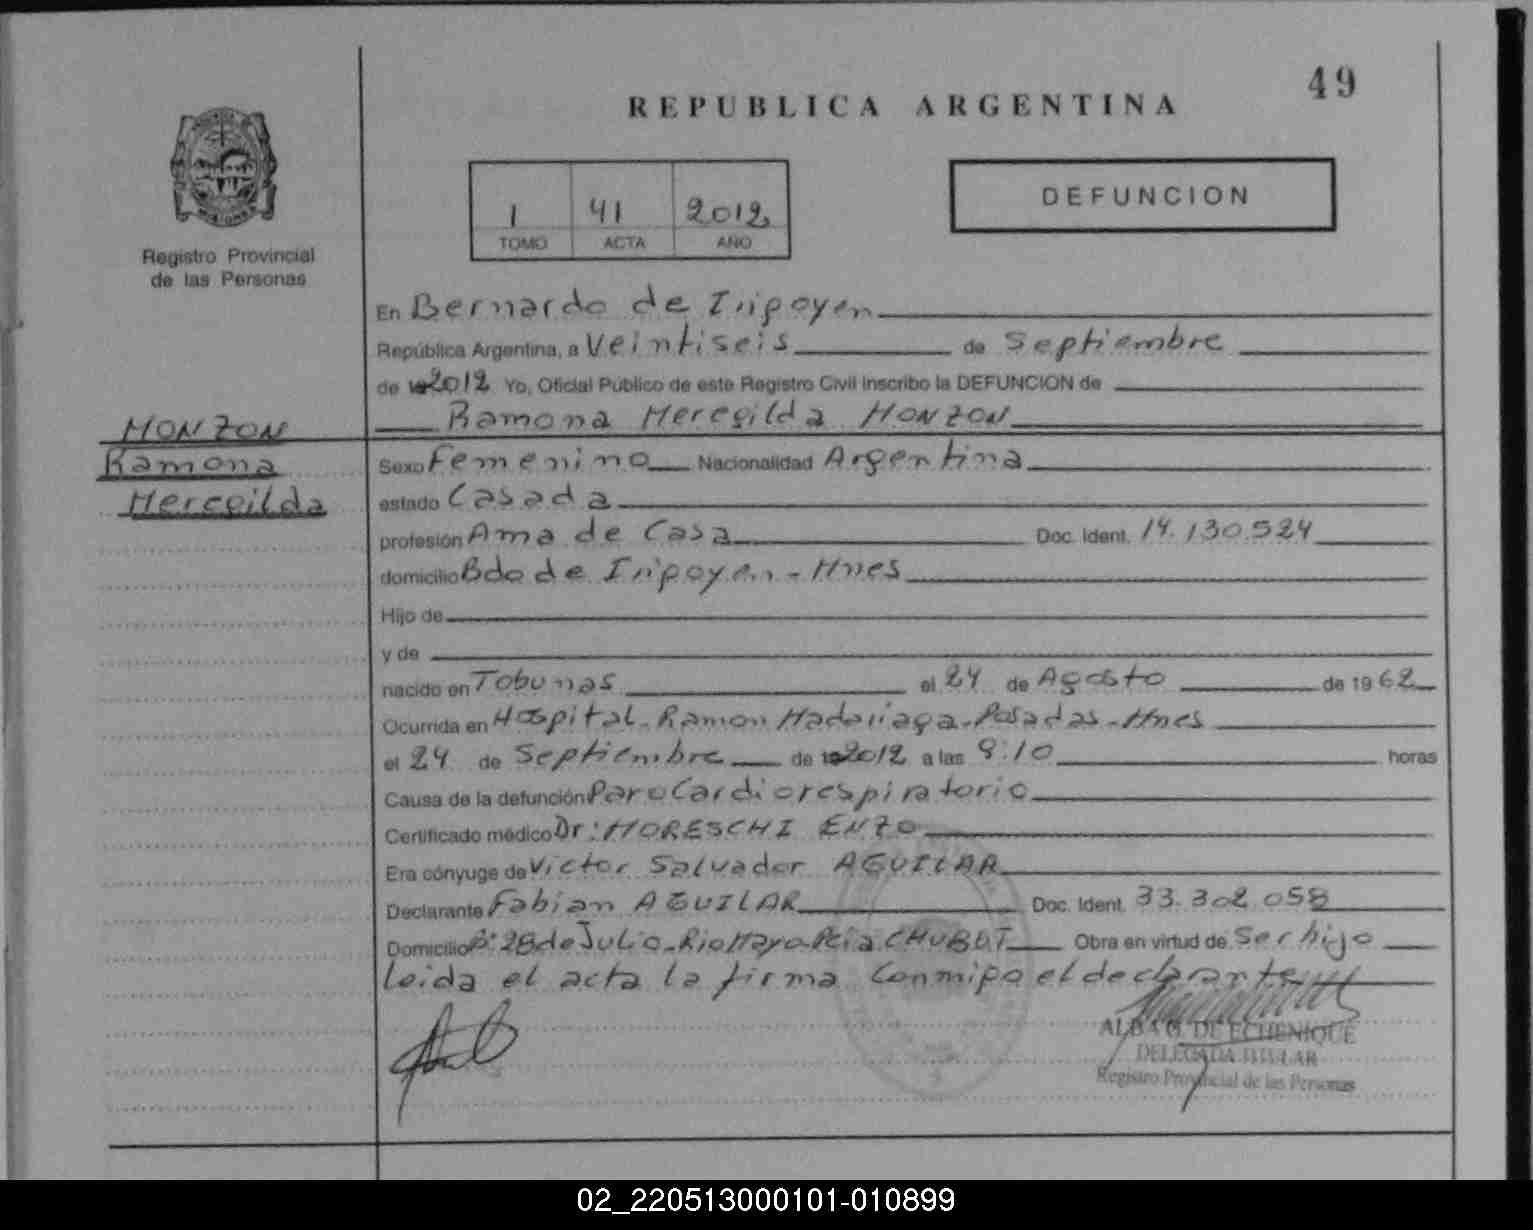 49
REPUBLICA ARGENTINA
DEFUNCION
1 41 2012
TOMO ACTA AÑO
Registro Provincial
de las Personas
En Bernardo de Irigoyen
República Argentina, a Veintiseis de Septiembre
de 2012 Yo, Oficial Público de este Registro Civil inscribo la DEFUNCION de
Ramona Meregilda MONZON
MONZON
Ramona
Meregilda
Sexo Femenino Nacionalidad Argentina
estado Casada
profesión Ama de Casa Doc. Ident. 14.130.524
domicilio Bdo de Irigoyen - Mnes
Hijo de
y de
nacido en Tobunas el 24 de Agosto de 1962
Ocurrida en Hospital - Ramon Madariaga - Posadas - Mnes
el 24 de Septiembre de 2012 a las 9:10 horas
Causa de la defunción Paro Cardiorespiratorio
Certificado médico Dr: MORESCHI ENZO
Era cónyuge de Victor Salvador AGUILAR
Declarante Fabian AGUILAR Doc. Ident. 33.302.058
Domicilio 28 de Julio - Rio Mayo - Pcia CHUBUT Obra en virtud de Ser hijo
leida el acta la firma Conmigo el declarante
ALBA G. DE ECHENIQUE
DELEGADA TITULAR
Registro Provincial de las Personas
02_220513000101-010899